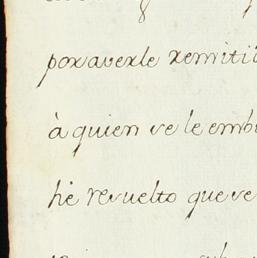 por averle remiti
à quien se le emb
hè resuelto que se